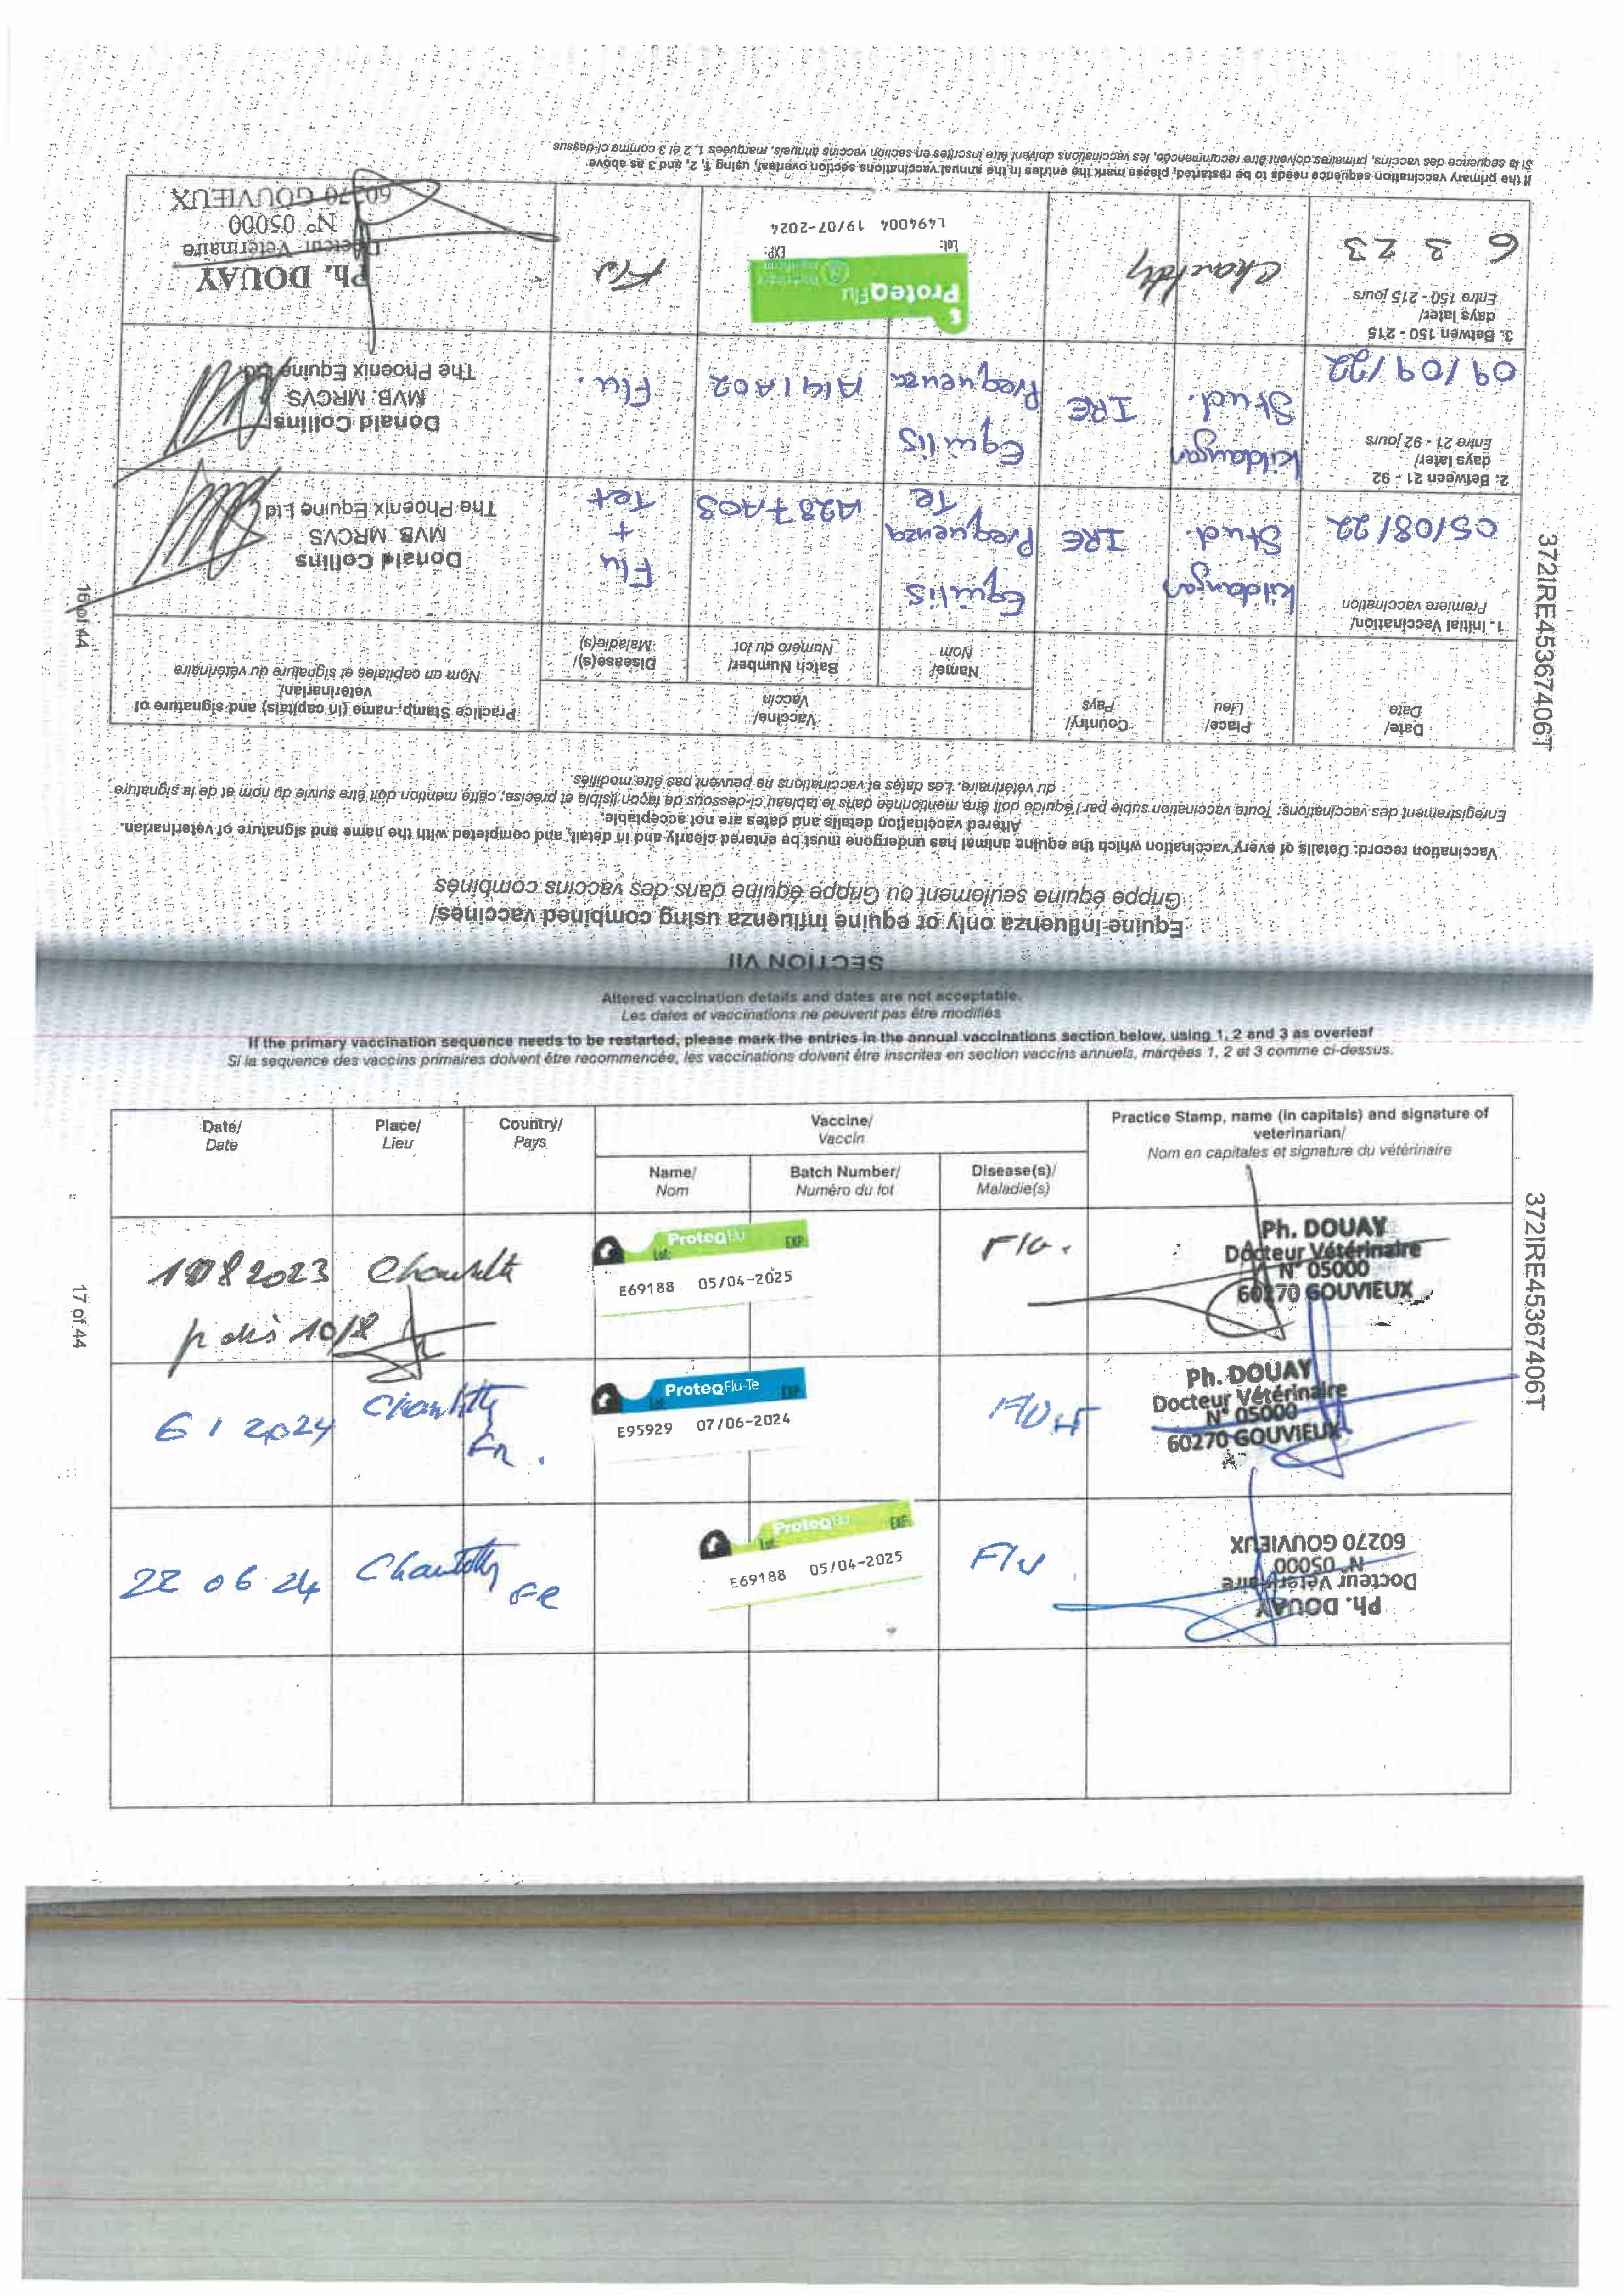 SECTION VII
Equine influenza only or equine influenza using combined vaccines/
Grippe équine seulement ou Grippe équine dans des vaccins combinés
Vaccination record: Details of every vaccination which the equine animal has undergone must be entered clearly and in detail, and completed with the name and signature of veterinarian.
Altered vaccination details and dates are not acceptable.
Enregistrement des vaccinations: Toute vaccination subie par l'équidé doit être mentionnée dans le tableau ci-dessous de façon lisible et précise, cette mention doit être suivie du nom et de la signature
du vétérinaire. Les dates et vaccinations ne peuvent pas être modifiés.
Date/
Date
Place/
Lieu
Country/
Pays
Vaccine/
Vaccin
Name/
Nom
Batch Number/
Numéro du lot
Disease(s)/
Maladie(s)
Practice Stamp, name (in capitals) and signature of
veterinarian/
Nom en capitales et signature du vétérinaire
1. Initial Vaccination/
Premiere vaccination
05/08/22
Kildangan
Stud.
IRE
Equilis
Prequenza
Te
A287A03
Flu
+
Tet
Donald Collins
MVB. MRCVS
The Phoenix Equine Ltd
2. Between 21 - 92
days later/
Entre 21 - 92 jours
09/09/22
Kildangan
Stud.
IRE
Equilis
Prequenza
A191A02
Flu.
Donald Collins
MVB. MRCVS
The Phoenix Equine Ltd
3. Betwen 150 - 215
days later/
Entre 150 - 215 jours
6 3 23
Chantilly
ProteqFlu
Lot:
EXP:
L494004 19/07-2024
Flu
Ph. DOUAY
Docteur Vétérinaire
N° 05000
60270 GOUVIEUX
If the primary vaccination sequence needs to be restarted, please mark the entries in the annual vaccinations section overleaf, using 1, 2, and 3 as above
Si la sequence des vaccins, primaires doivent être recommencée, les vaccinations doivent être inscrites en section vaccins annuels, marquées 1, 2 et 3 comme ci-dessus
16 of 44
372IRE45367406T
Altered vaccination details and dates are not acceptable.
Les dates et vaccinations ne peuvent pas être modifiés
If the primary vaccination sequence needs to be restarted, please mark the entries in the annual vaccinations section below, using 1, 2 and 3 as overleaf
Si la sequence des vaccins primaires doivent être recommencée, les vaccinations doivent être inscrites en section vaccins annuels, marqées 1, 2 et 3 comme ci-dessus.
Date/
Date
Place/
Lieu
Country/
Pays
Vaccine/
Vaccin
Name/
Nom
Batch Number/
Numéro du lot
Disease(s)/
Maladie(s)
Practice Stamp, name (in capitals) and signature of
veterinarian/
Nom en capitales et signature du vétérinaire
8 2023 Chantilly
10/8
ProteqFlu
Lot:
EXP:
E69188 05/04-2025
Flu.
Ph. DOUAY
Docteur Vétérinaire
N° 05000
60270 GOUVIEUX
6 1 2024 Chantilly
Fr.
ProteqFlu-Te
EXP:
E95929 07/06-2024
Ph. DOUAY
Docteur Vétérinaire
N° 05000
60270 GOUVIEUX
22 06 24 Chantilly
FR
ProteqFlu
Lot:
EXP:
E69188 05/04-2025
Flu
Ph. DOUAY
Docteur Vétérinaire
N° 05000
60270 GOUVIEUX
17 of 44
372IRE45367406T